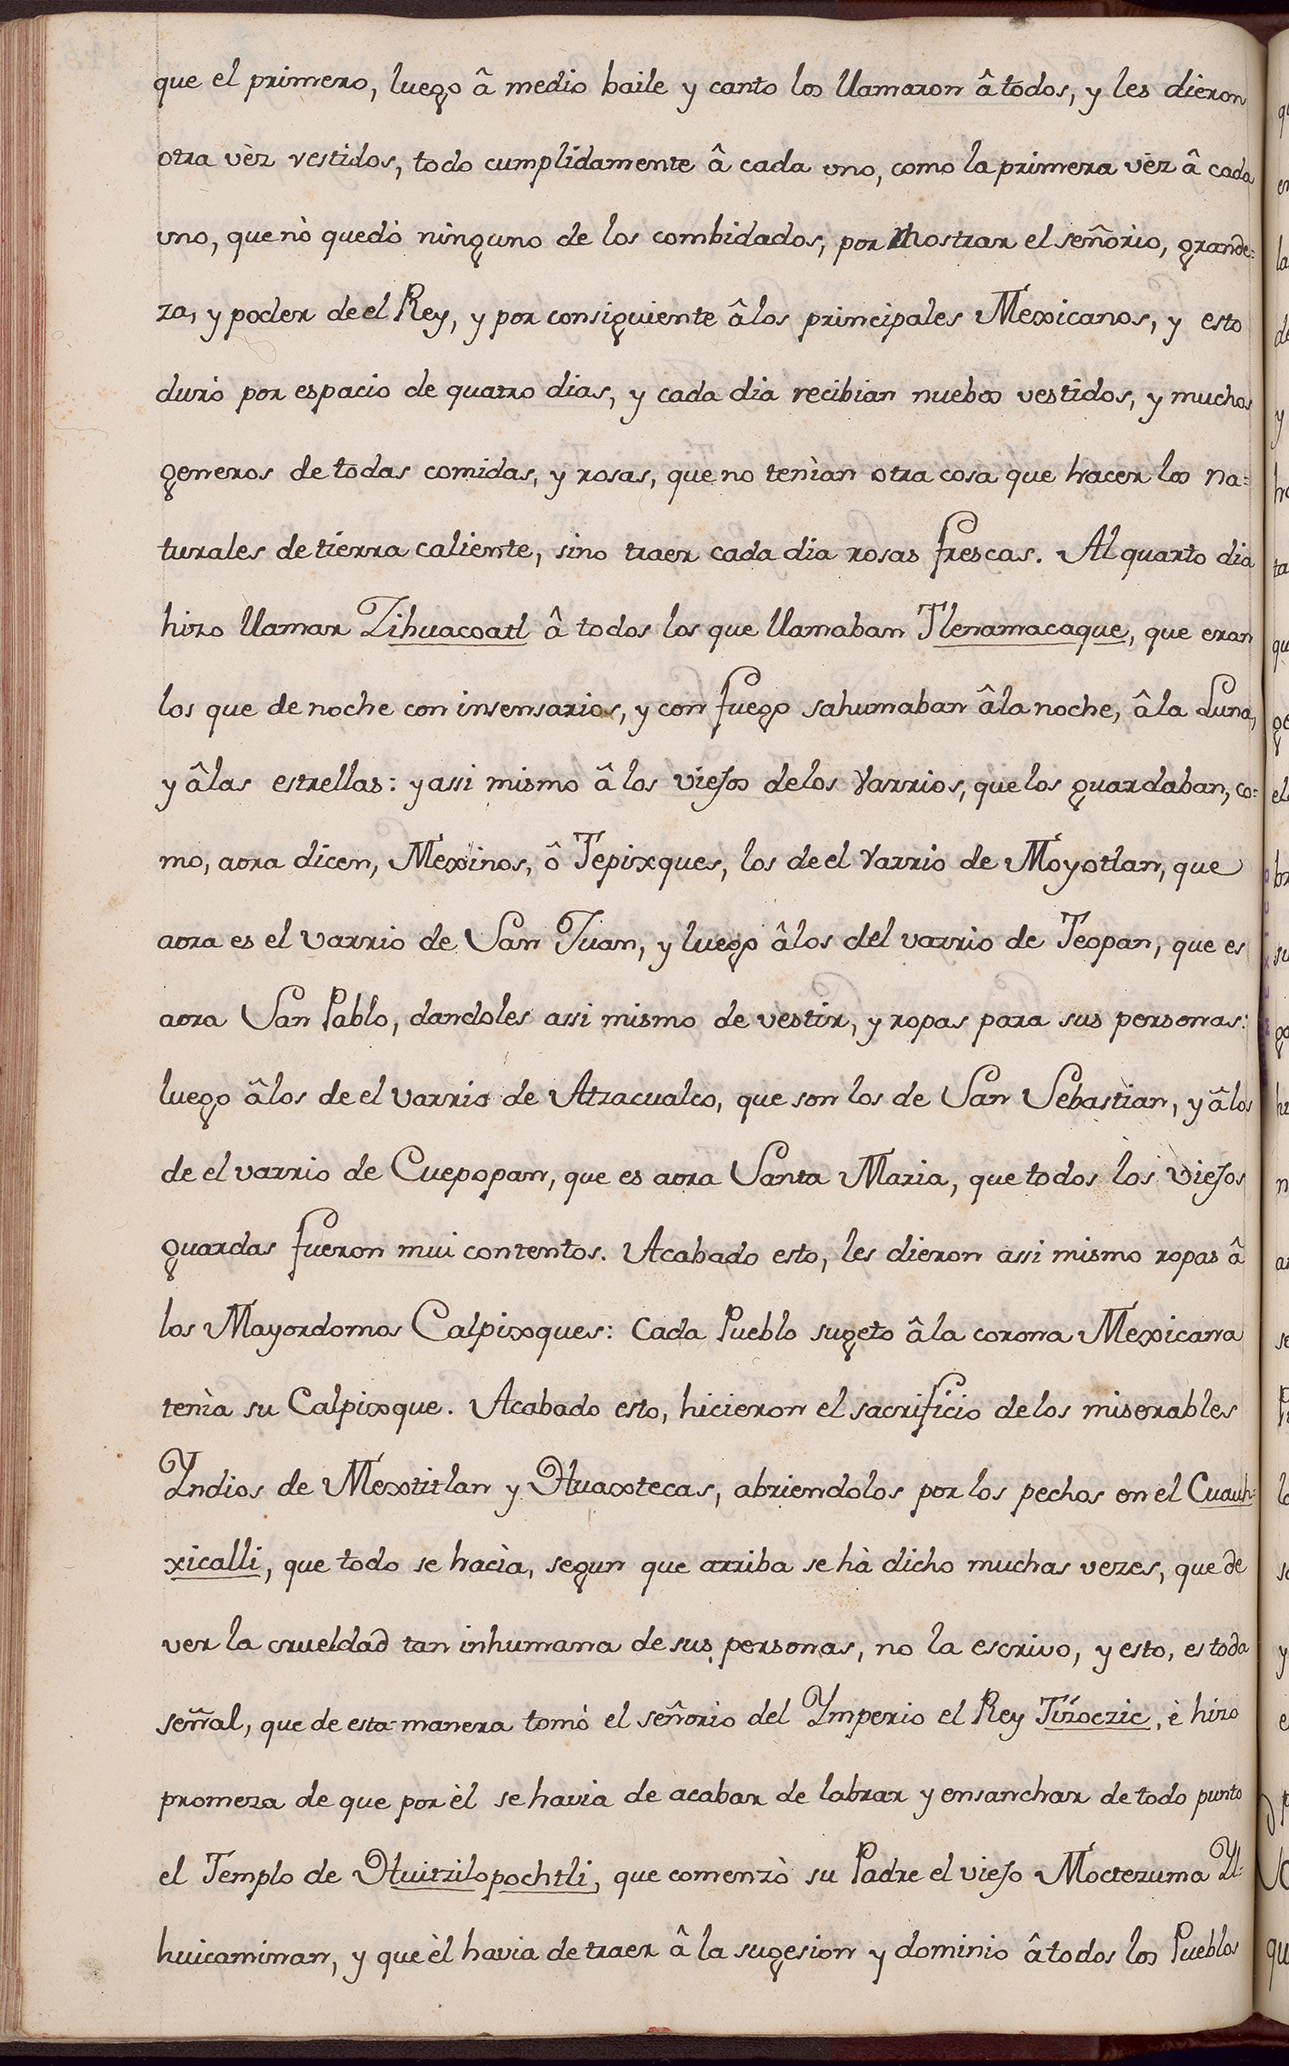 que el primero, luego â medio baile y canto los llamaron â todos, y les dieron
otra vèz vestidos, todo cumplidamente â cada uno, como la primera vèz â cada
uno, que nò quedò ninguno de los combidados, por mostrar el señorìo, grande=
za, y poder de el Rey, y por consiguiente â los principales Mexicanos, y esto
durò por espacio de quatro dias, y cada dia recibian nuebos vestidos, y muchos
generos de todas comidas, y rosas, que no tenìan otra cosa que hacer los na=
turales de tierra caliente, sino traer cada dia rosas frescas. Al quarto dia
hizo llamar Zihuacoatl â todos los que llamaban Tlenamacaque, que eran
los que de noche con insensarios, y con fuego sahumaban â la noche, â la Luna,
y â las estrellas: y assi mismo â los viejos de los Varrios, que los guardaban, co=
mo, aora dicen, Mexinos, ô Tepixques, los de el Varrio de Moyotlan, que
aora es el varrio de San Juan, y luego â los del varrio de Teopan, que es
aora San Pablo, dandoles assi mismo de vestir, y ropas para sus personas:
luego â los de el varrio de Atzacualco, que son los de San Sebastian, y â los
de el varrio de Cuepopan, que es aora Santa Maria, que todos los viejos
guardas fueron mui contentos. Acabado esto, les dieron assi mismo ropas â
los Mayordomos Calpixques: Cada Pueblo sugeto â la corona Mexicana
tenìa su Calpixque. Acabado esto, hicieron el sacrificio de los miserables
Yndios de Mextitlan y Huaxtecas, abriendolos por los pechos en el Cuauh=
xicalli, que todo se hacìa, segun que arriba se hà dicho muchas vezes, que de
ver la crueldad tan inhumana de sus personas, no la escrivo, y esto, es toda
señal, que de esta manera tomò el señorio del Ymperio el Rey Tizoczic, è hizo
promeza de que por èl se havia de acabar de labrar y ensanchar de todo punto
el Templo de Huitzilopochtli, que comenzò su Padre el viejo Moctezuma Yl=
huicaminan, y que èl havia de traer â la sugesion y dominio â todos los Pueblos